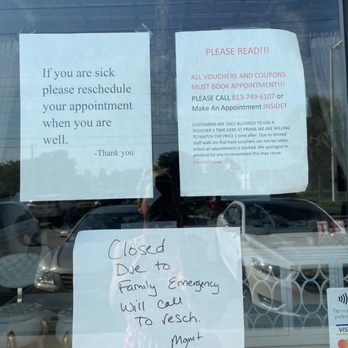 If you are sick
please reschedule
your appointment
when you are
well.
-Thank you
PLEASE READ!!!
ALL VOUCHERS AND COUPONS
MUST BOOK APPOINTMENT!!!
PLEASE CALL 813-749-6107 or
Make An Appointment INSIDE!
CUSTOMERS ARE ONLY ALLOWED TO USE A
VOUCHER 1 TIME HERE AT PRANA WE ARE WILLING
TO MATCH THE PRICE 1 time after. Due to limited
staff walk-ins that have vouchers can not be taken
unless an appointment is booked. We apologize in
advance for any inconvenience this may cause.
Closed
Due to
Family Emergency
Will call
To resch.
Mgmt
VISA